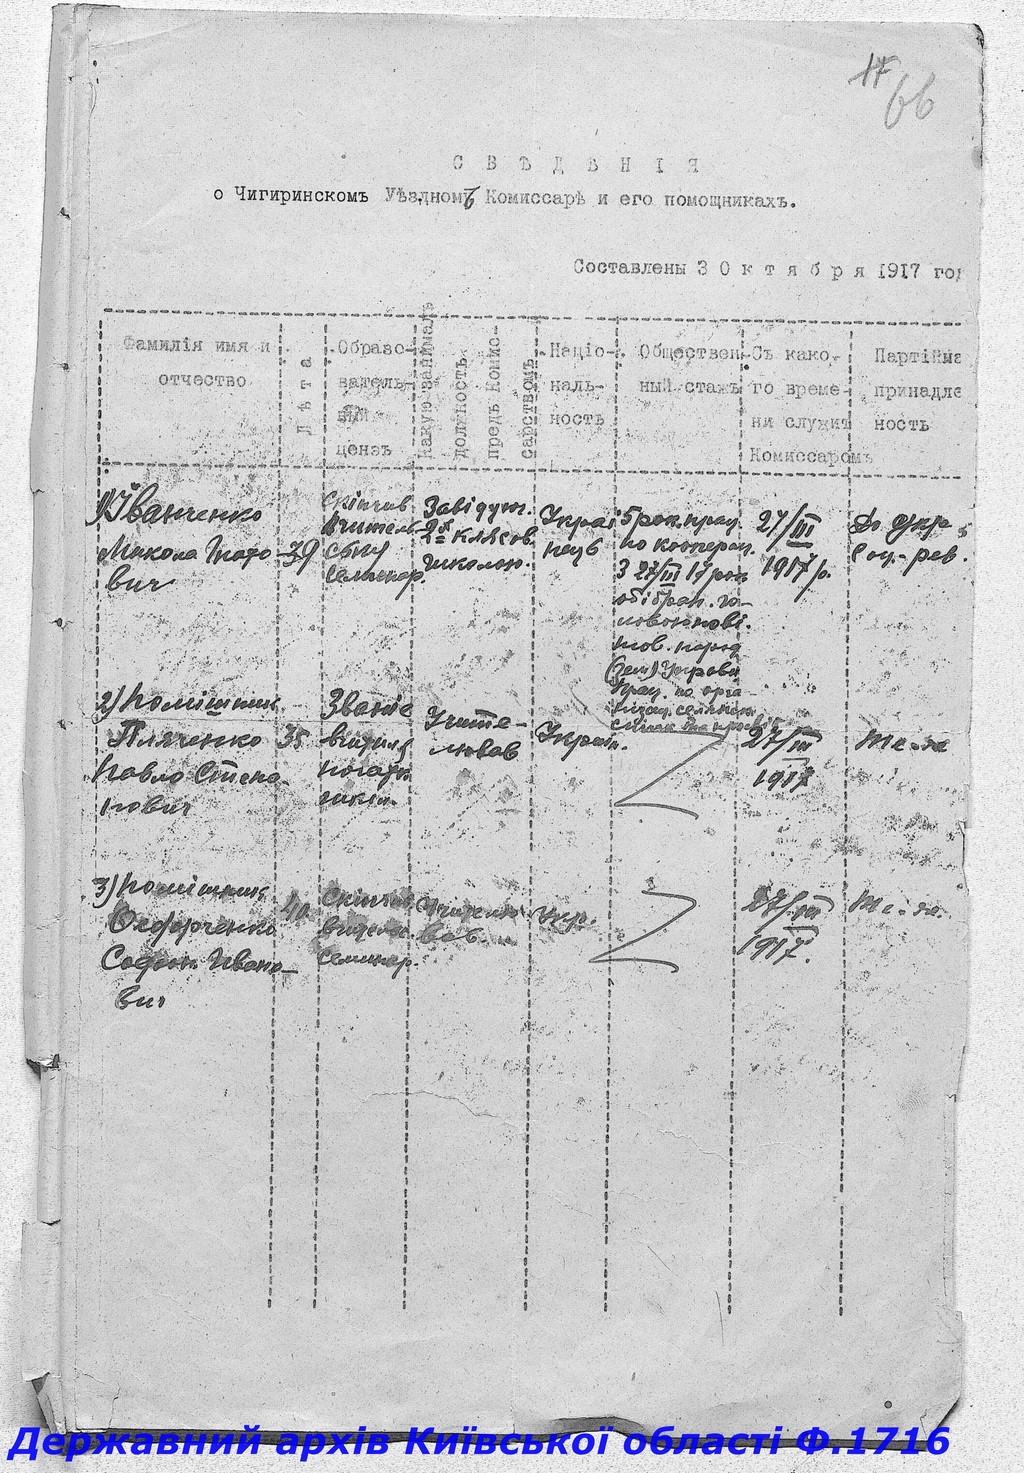 17
66
СВѢДѢНІЯ
о Чигиринскомъ Уѣздномъ Комиссарѣ и его помощникахъ.
Составлены 3 Октября 1917 го
Фамилія имя и
отчество
Лѣта
Образо-
ватель-
ный
цензъ
Какую занималъ
должность
предъ Комис-
сарствомъ
Націо-
наль-
ность
Обществен-
ный стажъ
Съ како-
го време-
ни служитъ
Комиссаромъ
Партійна
принадле
ность
1) Іванченко
Микола Гнато
вич
39
Скінчив
вчитель
ську
семінар.
Завідуюч.
2х клясов.
школою.
Украї
нець
5 рок. прац.
по коопер
З 27/III 17 рок
обібран. го-
ловою пові.
тов. народ
(зем) Управи
Прац. по орга
27/III
1917 р.
До Укр
соц.-рев.
2) Помішник
Пляченко
Павло Степа
нович
35
Званіе
вчителя
початк
шкіл.
Учите-
лював
Україн.
27/III
1917
те-же
3) Помішник
Софрон Ивано-
вич
40
Скінчив
вчител.
семинар.
Учителю
вав
Укр.
27/III
1917.
те-же
Державний архів Київської області Ф.1716